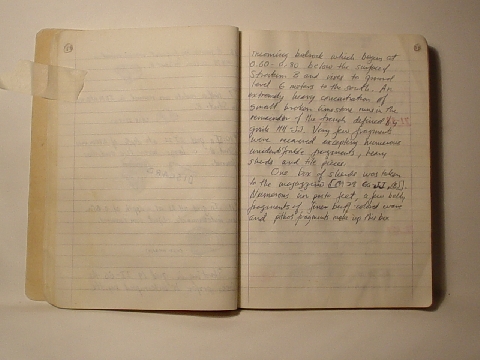 Incoming bedrock which begins at
0.60-0.80 below the surface of
Stratum 3 and rises to ground
level 6 meters to the south. An
extremely heavy concentration of
small broken limestone runs in the
remainder of the trench defined by
grids
Very few fragments
were recovered excepting numerous
unidentifiable fragments, heavy
sherds and tile pieces.
One box of sherds was taken
to the
Numerous feet, a few body
fragments of finer buff-colored ware
and pithos fragments make up this box